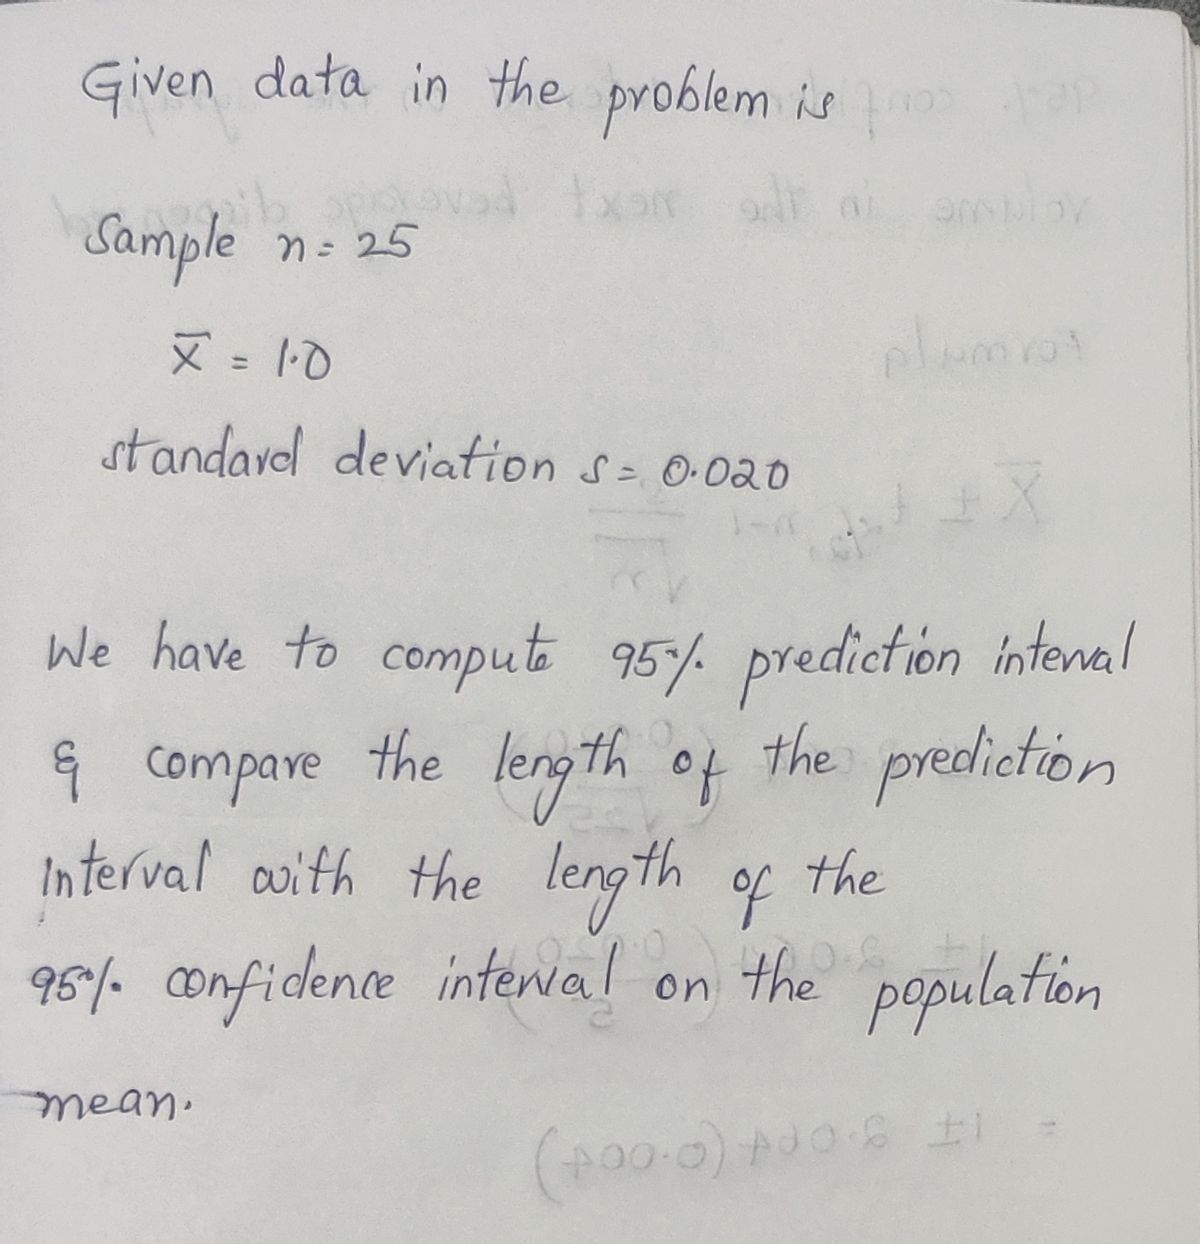 Given data in the problem is
Sample n = 25
x̄ = 1.0
standard deviation s = 0.020
We have to compute 95% prediction interval
& compare the length of the prediction
interval with the length of the
95% confidence interval on the population
mean.